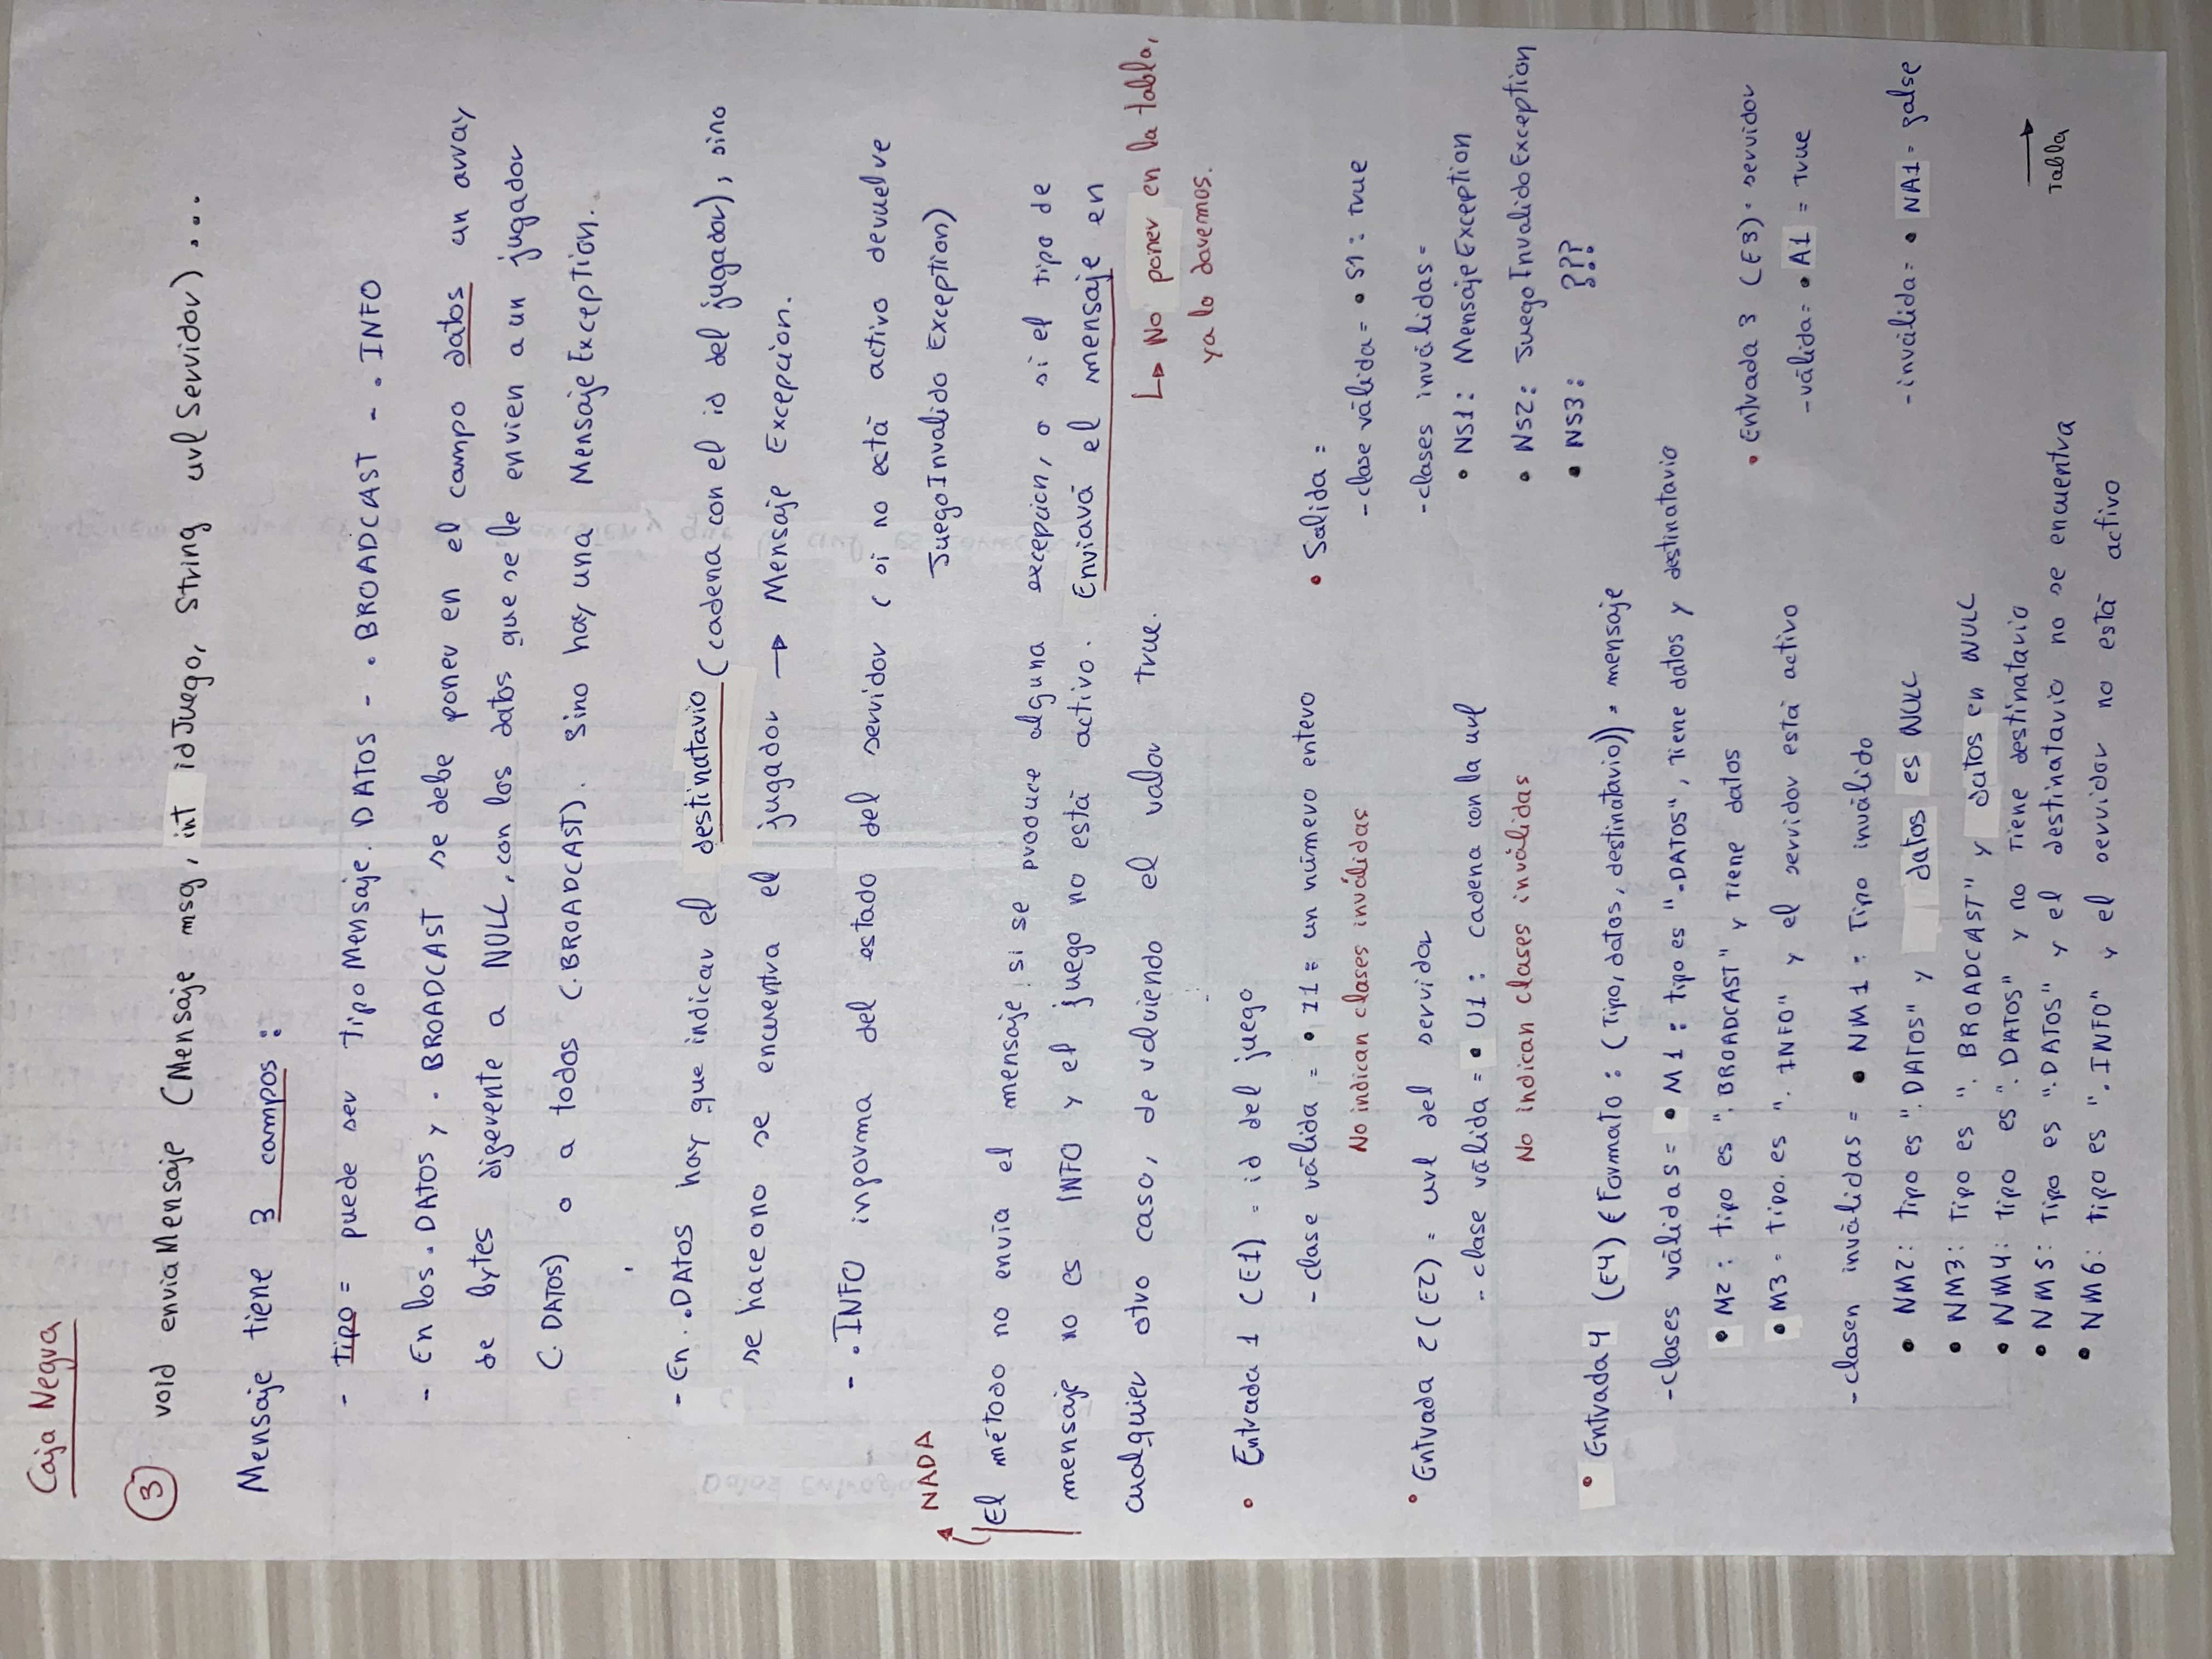 Caja Negra
③ void enviaMensaje (Mensaje msg, int idJuego, String urlServidor) ...
Mensaje tiene 3 campos :
- tipo = puede ser tipoMensaje. DATOS - . BROADCAST - . INFO
- En los . DATOS y . BROADCAST se debe poner en el campo datos un array
de bytes diferente a NULL, con los datos que se le envien a un jugador
(. DATOS) o a todos (.BROADCAST). Sino hay una MensajeException.
- En . .DATOS hay que indicar el destinatario (cadena con el id del jugador), sino
se hace o no se encuentra el jugador → Mensaje Excepcion.
- . INFO informa del estado del servidor ( si no está activo devuelve
JuegoInvalido Exception)
NADA
El método no envía el mensaje si se produce alguna excepcion, o si el tipo de
mensaje no es INFO y el juego no está activo. Enviará el mensaje en
cualquier otro caso, devolviendo el valor true.
↳ No poner en la tabla,
ya lo daremos.
• Entrada 1 (E1) = id del juego
- clase válida = • I1 = un número entero
No indican clases inválidas
• Salida =
- clase válida = • S1 : true
- clases inválidas =
• NS1 : MensajeException
• NS2 : JuegoInvalidoException
• NS3 : ???
• Entrada 2 (E2) = url del servidor
- clase válida = • U1 : cadena con la url
No indican clases inválidas
• Entrada 4 (E4) (Formato : (Tipo, datos, destinatario)) = mensaje
- clases válidas = • M1 : tipo es ".DATOS", tiene datos y destinatario
• M2 : tipo es ". BROADCAST" y tiene datos
• M3 = tipo. es ". INFO" y el servidor está activo
• Entrada 3 (E3) = servidor
- válida = • A1 = true
- inválida = • NA1 = false
- clasen inválidas = • NM1 : Tipo inválido
• NM2 : tipo es ". DATOS" y datos es NULL
• NM3 : Tipo es ". BROADCAST" y datos en NULL
• NM4 : tipo es ". DATOS" y no tiene destinatario
• NM5 : Tipo es ".DATOS" y el destinatario no se encuentra
• NM6 : tipo es ". INFO" y el servidor no está activo
→
Tabla